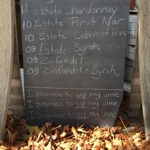 11 Estate Chardonnay
10 Estate Pinot Noir
10 Estate Cabernet Franc
09 Estate Syrah
09 Zinfandel
09 Zinfandel - Syrah
I promise to sip my wine
I promise to sip my wine
I promise to sip my wine